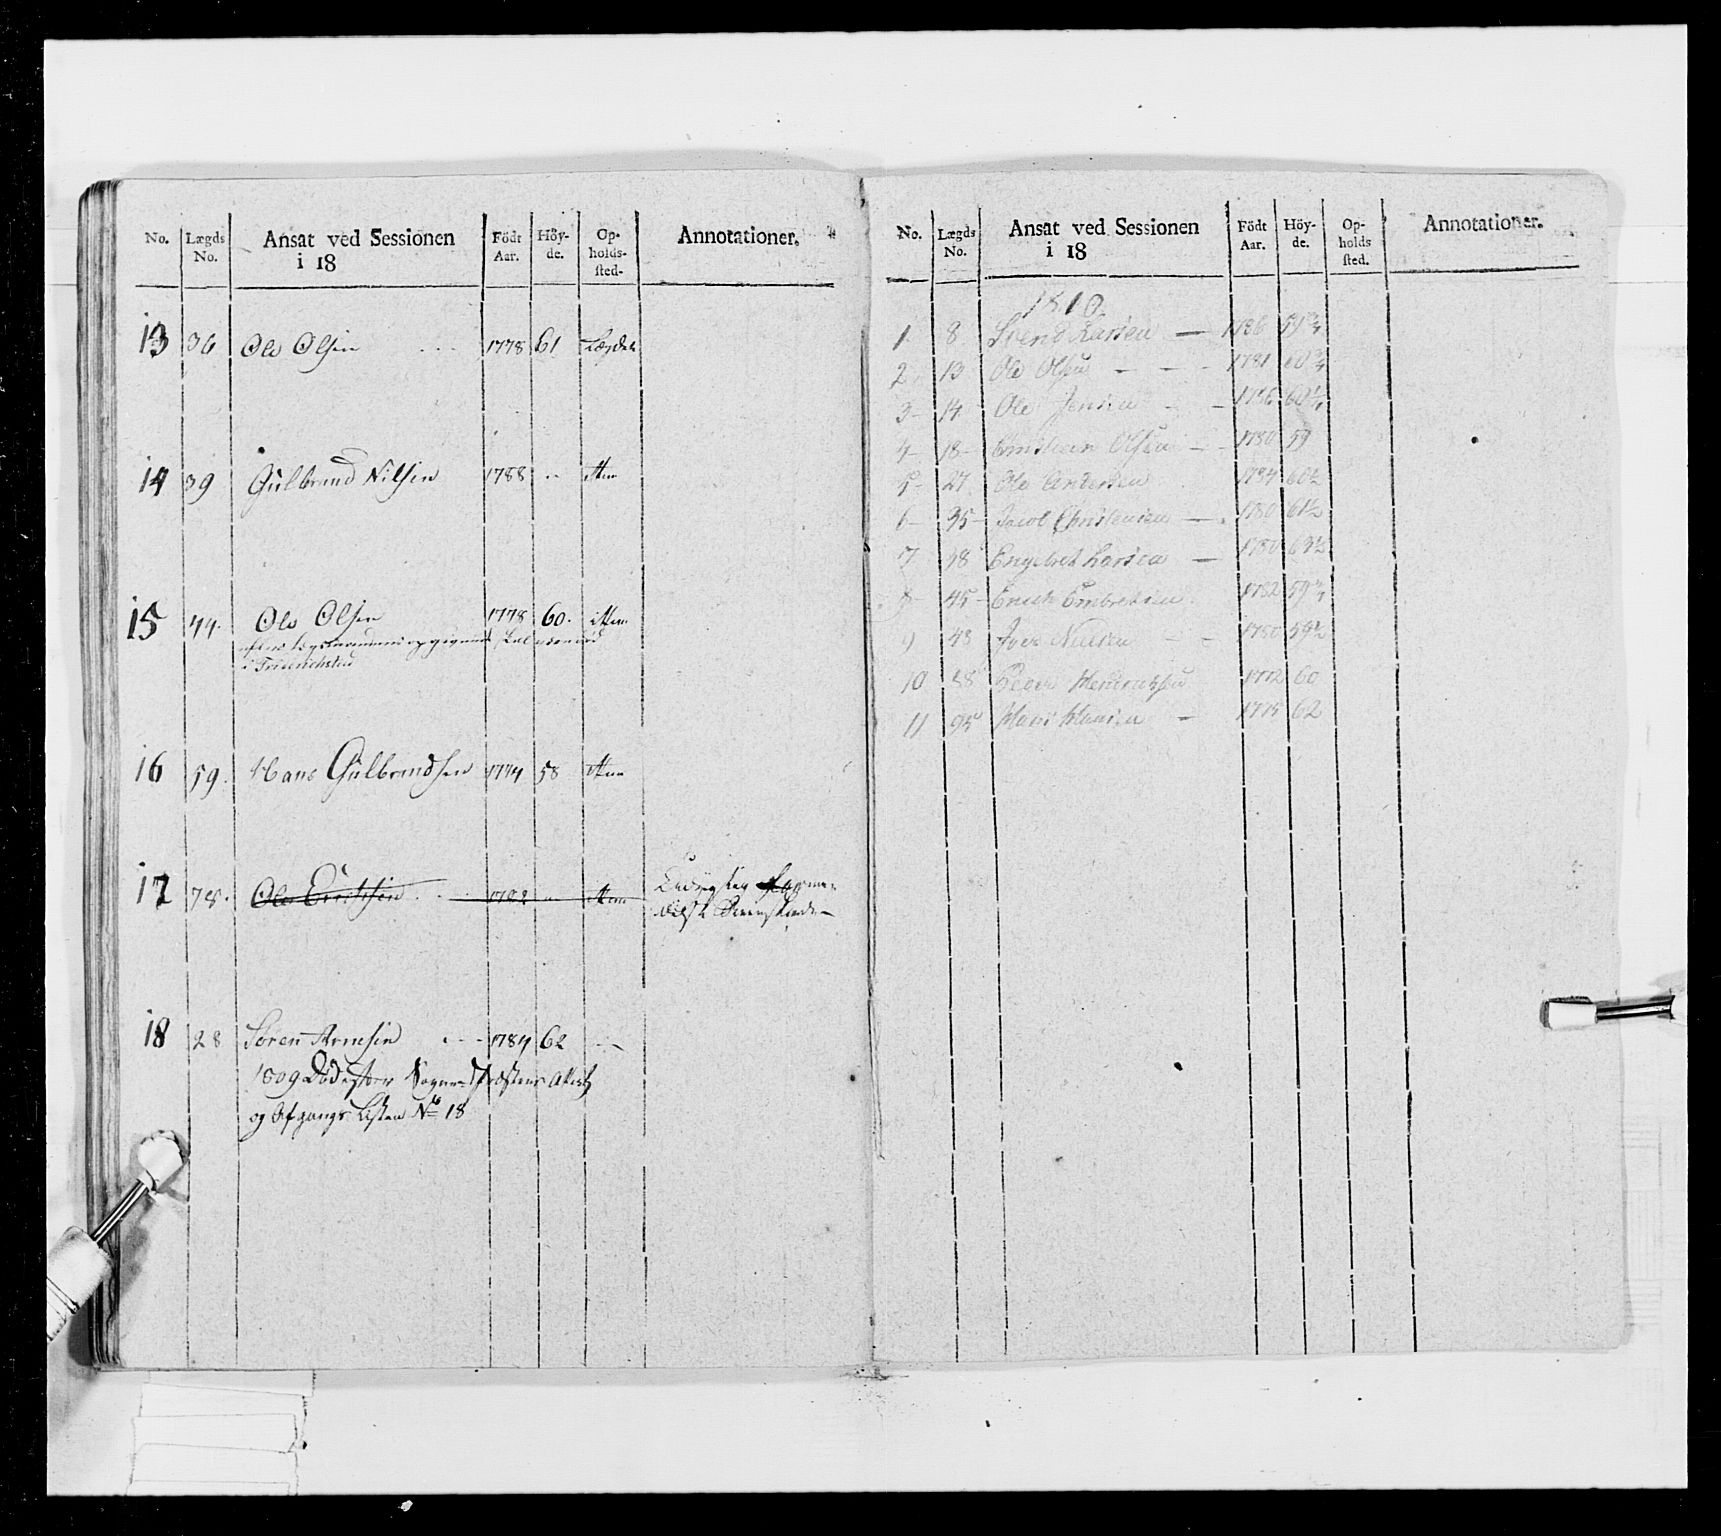 No. Lægds No. Ansat ved Sessionen i 18 Födt Aar. Höy-de. Op-holds-sted- Annotationer.
13 36 Ole Olsen 1778 61 Lægdet
14 39 Gulbrand Nilsen 1788 " Item
15 44. Ole Olsen 1778 60. item
i Friderichstad
16 59. Hans Gulbrandsen 1774 58 Item
17 78. Ole Erichsen 1782 " Item
18 28 Søren Arnesen 1784 62
1809 Død efter Sogne Præstens Attest
og Afgangs Listen No 18
No. Lægds No. Ansat ved Sessionen i 18 Födt Aar. Höy-de. Op-holds sted. Annotationer.
1810.
1 8 Svend Larsen 1786 59 3/4
2 13 Ole Olsen 1781 60 3/4
3 14 Ole Jensen 1786 60 1/4
4 18 Christian Olsen 1780 59
5 27 Ole Andersen 1784 60 1/2
6 35 Jacob Christensen 1780 61 1/2
7 38 Engebret Larsen 1780 63 1/2
8 45 Erich Embretsen 1782 59 3/4
9 48 Iver Nielsen 1780 59 1/2
10 88 Peder Henrichsen 1772 60
11 95 Hans Hansen 1775 62